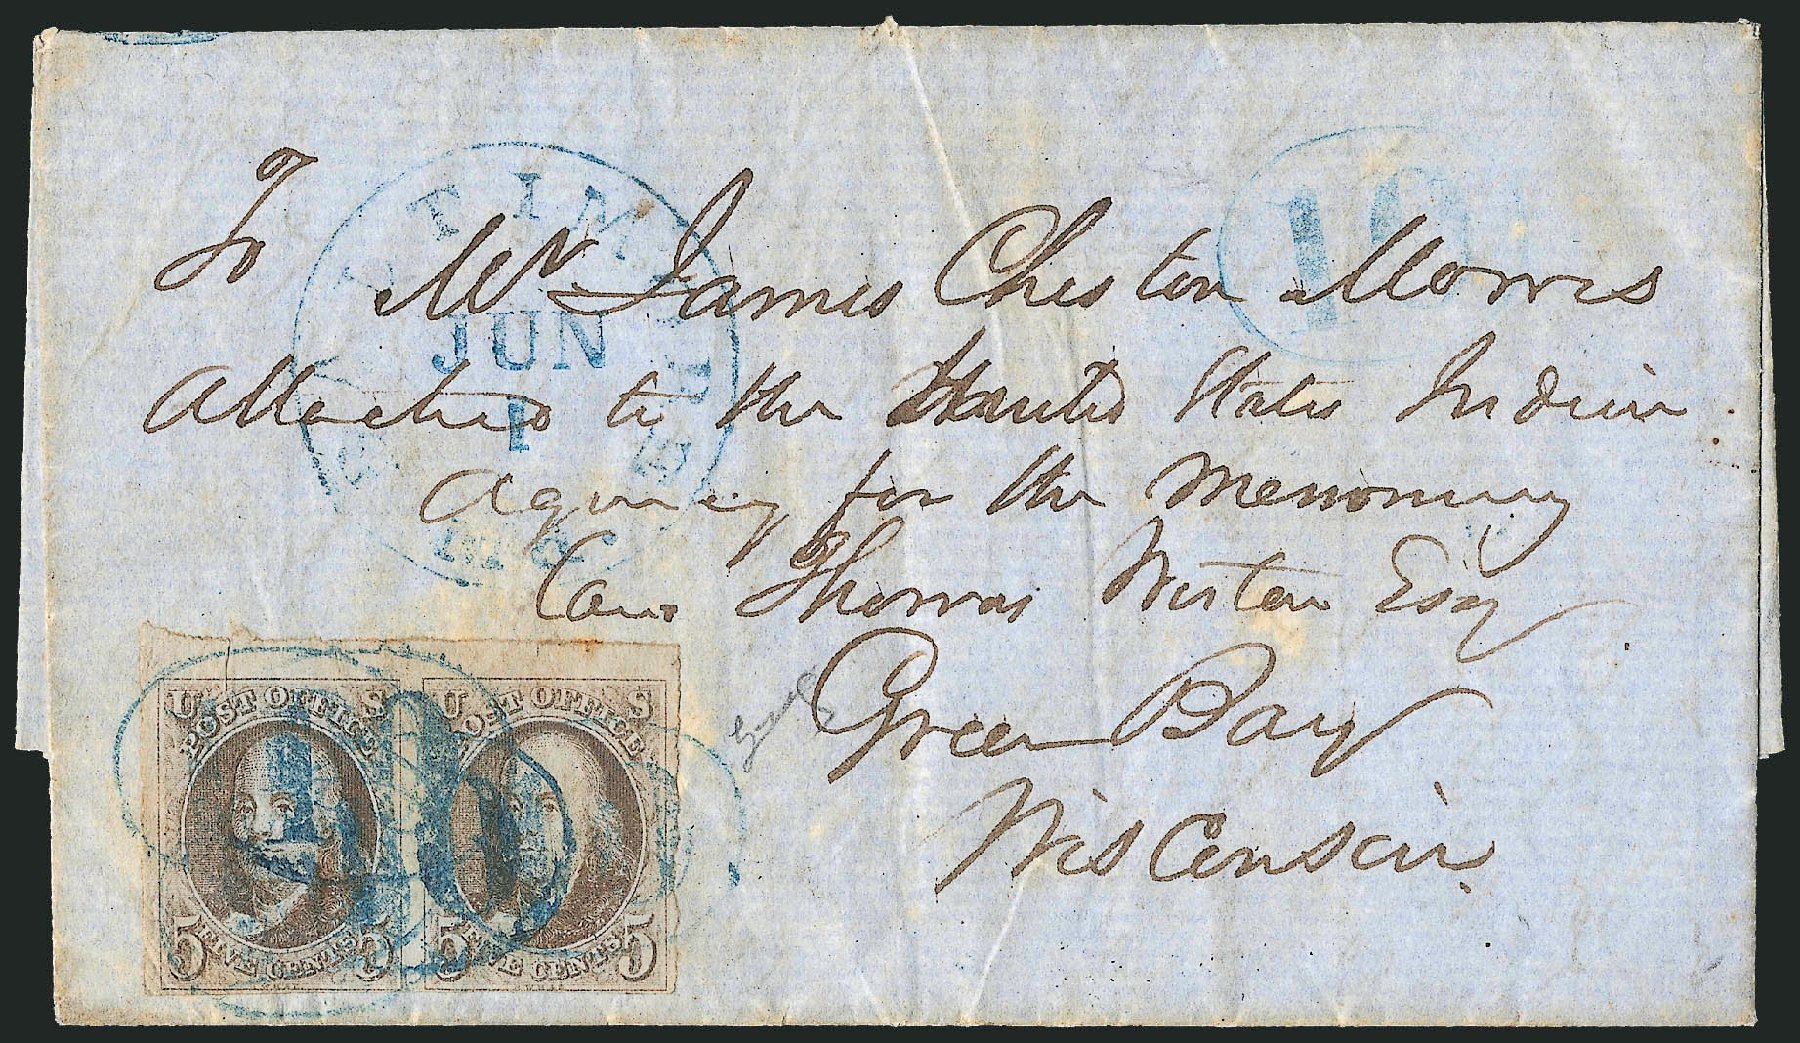 To Mr James Cheston Morris
Attached to the United States Indian
Agency for the Menomeny
Care Thomas Wistar Esq
Green Bay
Wisconsin.
BALTIMORE
JUN
1
Md.
10
10
U S
POST OFFICE
5 FIVE CENTS 5
U S
POST OFFICE
5 FIVE CENTS 5